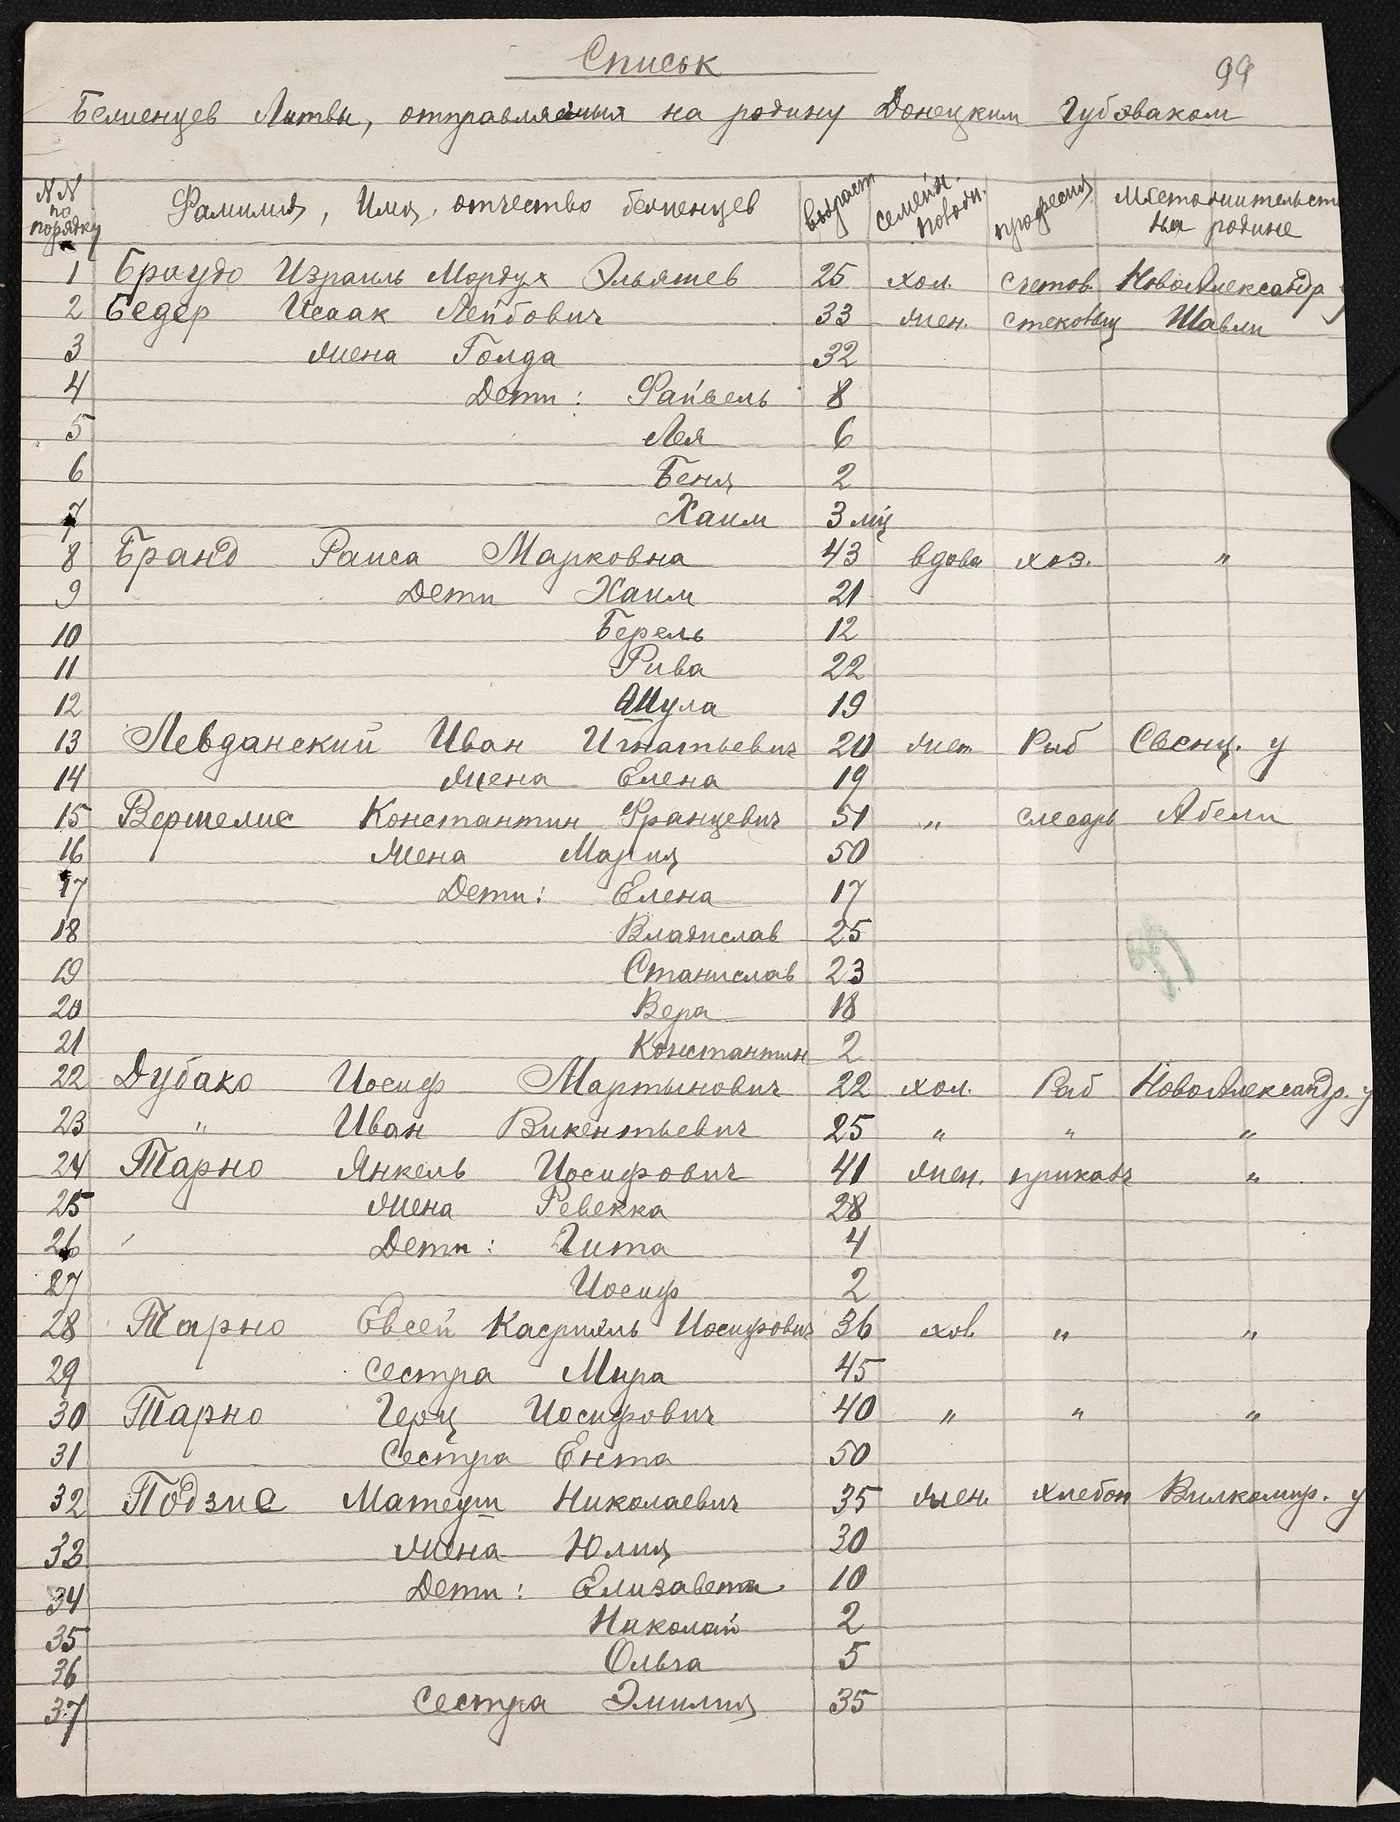 Списък
99
Беженцев Литвы, отправляемыя на родину Донецким Губэваком
NN по порядку Фамилия, Имя, отчество беженцев возраст семейн. полож. професия Место жительств на родине
1 Браудо Израиль Мордух Эльяшев 25 хол. счетов. НовоАлександр. у
2 Бедер Исаак Лейбович 33 жен. стекольщ Шавли
3 жена Голда 32
4 Дети: Файвель 8
5 Лея 6
6 Беня 2
7 Хаим 3 мц
8 Бранд Раиса Марковна 43 вдова хоз. "
9 Дети Хаим 21
10 Берель 12
11 Рива 22
12 Шула 19
13 Левданский Иван Игнатьевич 20 жен Раб Свенц. у
14 жена Елена 19
15 Вержелис Константин Францевич 51 " слесарь Абели
16 жена Мария 50
17 Дети: Елена 17
18 Владислав 25
19 Станислав 23
20 Вера 18
21 Константин 2
22 Дубако Иосиф Мартынович 22 хол. Раб НовоАлександр. у
23 " Иван Викентьевич 25 " " "
24 Тарно Янкель Иосифович 41 жен. приказч "
25 жена Ревекка 28
26 Дети: Гита 4
27 Иосиф 2
28 Тарно Евсей Касриэль Иосифович 36 хол " "
29 сестра Мира 45
30 Тарно Герц Иосифович 40 " " "
31 Сестра Ента 50
32 Подзис Матеуш Николаевич 35 жен. хлебоп Вилкомир. у
33 жена Юлия 30
34 Дети: Елизавета 10
35 Николай 2
36 Ольга 5
37 Сестра Эмилия 35